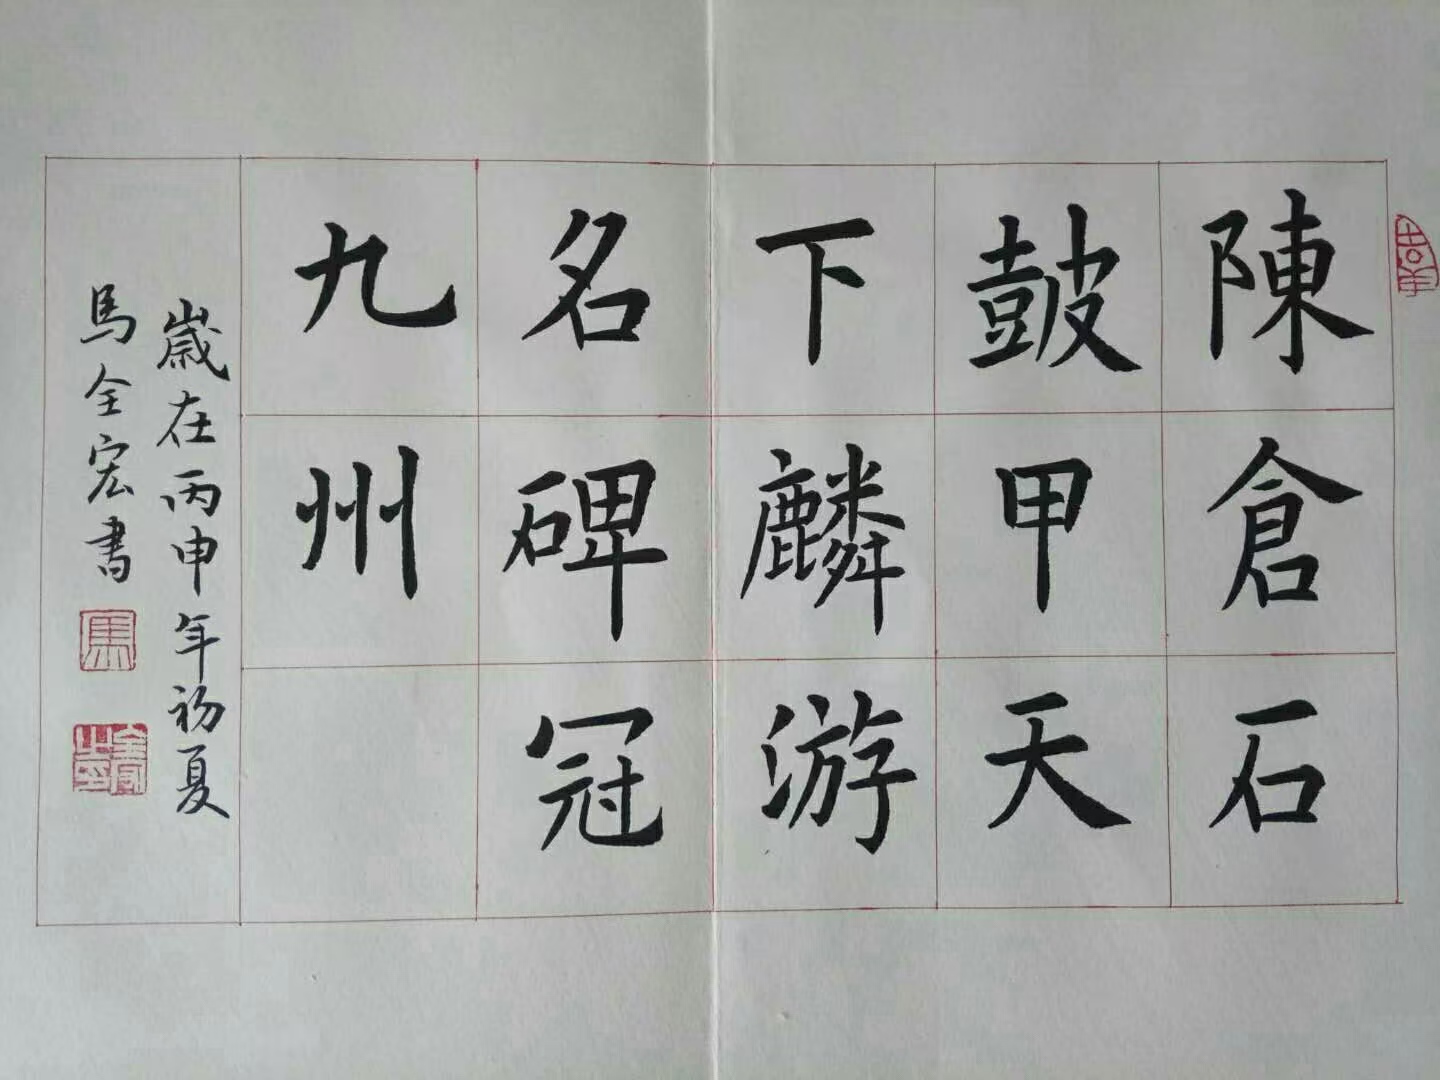 陳倉石
皷甲天
下麟游
名碑冠
九州
歲在丙申年初夏
馬全宏書
馬